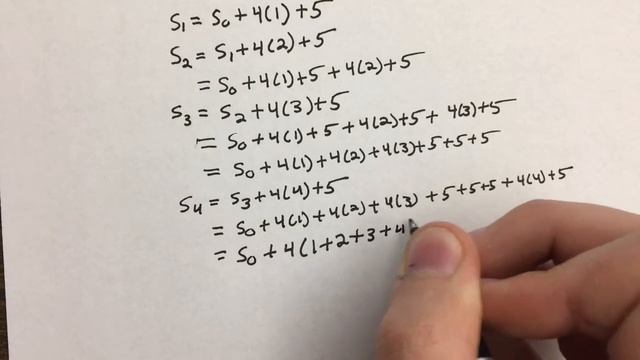 S₁ = S₀ + 4(1) + 5
S₂ = S₁ + 4(2) + 5
= S₀ + 4(1) + 5 + 4(2) + 5
S₃ = S₂ + 4(3) + 5
= S₀ + 4(1) + 5 + 4(2) + 5 + 4(3) + 5
= S₀ + 4(1) + 4(2) + 4(3) + 5 + 5 + 5
S₄ = S₃ + 4(4) + 5
= S₀ + 4(1) + 4(2) + 4(3) + 5 + 5 + 5 + 4(4) + 5
= S₀ + 4(1 + 2 + 3 + 4